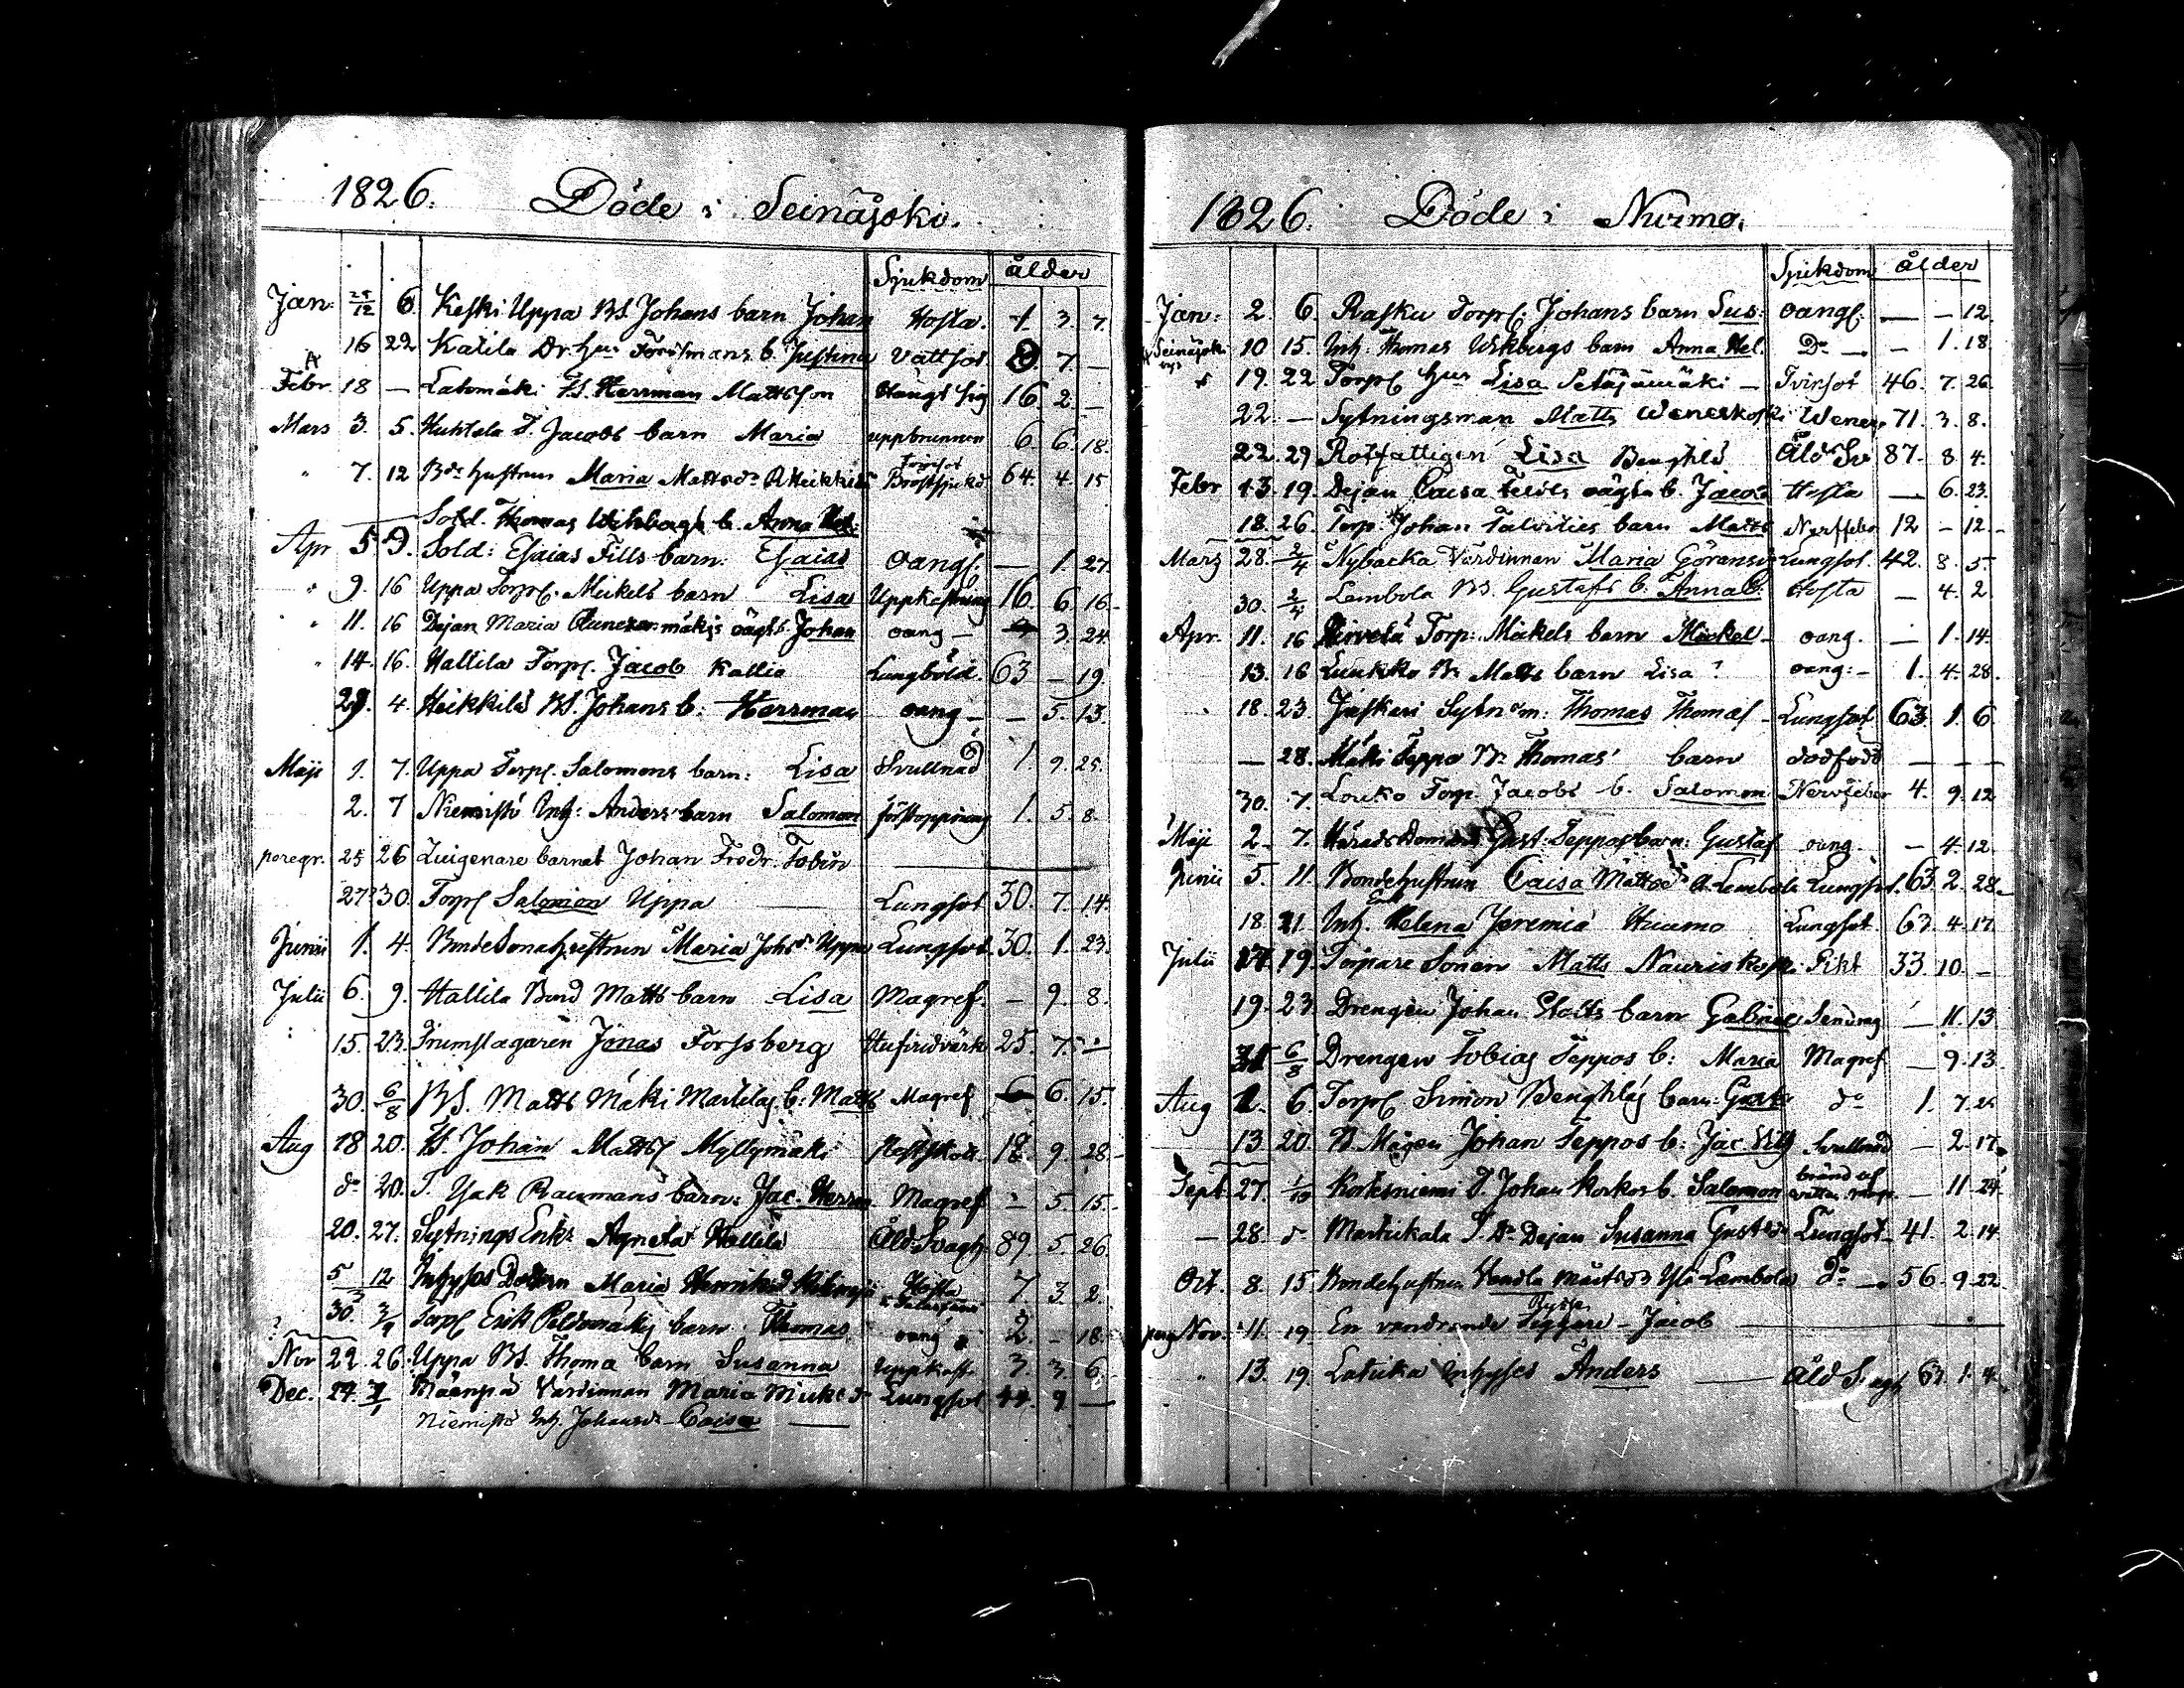 1826. Döde i Seinäjoki.
Sjukdom ålder
Jan: 25/12 6 Keski Uppa BS. Johans barn Johan Hosta. 1. 3. 7.
16 22 Katila Dr. hus Forstmans b. Justina Vattsot 7. —
Febr 18 — Lahomäki TS. Herrman Mattsson Hängt sig 16 2 —
Mars 3. 5. Huhtala T. Jacobs barn Maria uppbrunnen 6. 6. 18.
" 7. 12 Bde hustrun Maria Mattsdr Bröstsjukd 64. 4. 15
Sold. Thomas b. Anna Hel:
Apr 5 9. Sold: Esaias Fills barn: Esaias oangf. — 1. 27.
" 9. 16 Uppa Torpf. Mickels barn Lisa Uppkastning 16 6. 16.
" 11. 16 Dejan Maria oägta b. Johan oang — 3. 24
" 14. 16. Hallila Torpf. Jacob Kallio 63 — 19.
29. 4. Heikkilä BS. Johans b: Herrman oang — — 5. 13.
Maji 1. 7. Uppa Torpf. Salomons barn: Lisa Svullnad 1. 9. 25.
2. 7 Niemistö Inh: Anders barn Salomon förstoppning 1. 5. 8.
peregr. 25 26 Zuigenare barnet Johan Fredr. Tobin
27 30. Torpf Salomon Uppa — Lungsot 30. 7. 14.
Junii 1. 4. Bondesonahustrun Maria Johsdr Uppa Lungsot 30. 1. 23.
Julii 6. 9. Hallila Bond Matts barn Lisa Magref. — 9. 8.
15. 23. Trumslagaren Jonas Forssberg Hufvudvärk 25. 7. —
30. 6/8 BS. Matts Mäki Martilas b: Matts Magref 6. 15.
Aug 18 20. Johan Mattss Myllymäki 18 9. 28.
do 20. T. Jak Raumans barn: Jac. Herrm. Magref - 5. 15.
20. 27. Sytnings Enk: Agneta Hallila Åld. Svagh. 89. 5. 26.
5 12 Inhyses Dottern Maria Hosta 7 3. 2.
30. 3/9 Torpf Erik Peldomäkis barn Thomas oang 2. — 18.
Nov 22. 26. Uppa BS. Thoma barn Susanna Uppkast 3. 3. 6.
Dec. 24. 7/1 Mäenpä Värdinnan Maria Mickelsdr Lungsot 44. 9. —
Niemistö Inh. Johansdr Caisa —
1826. Döde i Nurmo.
Sjukdom ålder
Jan: 2. 6. Rasku Torpf. Johans barn Sus: oangf. — — 12.
Seinäjoki 10 15. Inh. Thomas barn Anna Hel. Do — — 1. 18.
19. 22 Torpf hus Lisa Petäjämäki — Tvinsot 46. 7. 26.
22. — Sytningsman Matts Weneskoski 71. 3. 8.
22. 29 Rotfattigen Lisa Benghlä Åld Sv 87. 8. 4.
Febr 13. 19. Dejan Caisa oägta b. Jacob Hosta — 6. 23.
18. 26. Torp: Johan Talvities barn Matts Nerffeber 12 — 12.
Mars 28. 2/4 Nybacka Värdinnan Maria Göransdr Lungsot. 42. 8. 5.
30. 2/4 Lembola BS. Gustafs b. Anna C: Hosta — 4. 2.
Apr. 11. 16 Hirvelä Torp: Mickels barn Mickel — oang. — 1. 14.
13. 16 Luukko B. Matts barn Lisa ? oang: — 1. 4. 28.
18. 23. Jaskari Sytn:m: Thomas Thomas — Lungsot 63. 1. 6.
— 28. Mäki Teppo B. Thomas' barn dödfödd — — —
30. 7. Louko Torp. Jacobs b. Salomon Nervfeber 4. 9. 12
Maji 2. 7. Gust. Teppos barn: Gustaf oang. — 4. 12.
Junii 5. 11. Bondehustrun Caisa Mattsdr Lembola Lungsot. 63. 2. 28.
18. 21. Inh. Helena Jeremiä Huumo Lungsot. 63. 4. 17.
Julii 17. 19. Torpare Sonen Matts Nauriskoski Gikt 33. 10. —
19. 23. Drengen Johan barn Gabriel — 11. 13
31 6/8 Drengen Tobias Teppos b: Maria Magref — 9. 13.
Aug 2. 6. Torpf. Simon Benghläs barn: do 1. 7. 25
13. 20. B. Mågen Johan Teppos b: Jac. Svullnad — 2. 17.
Sept 27. 1/10 Kortesniemi T. Johan b. Salomon bränd af — 11 24.
— 28. do Martikala Dejan Susanna Gustsdr Lungsot — 41. 2. 14.
Oct. 8. 15. Bondehustrun Mattsdr Yli Lembola do — 56. 9. 22.
Nov. 11. 19. En vandrande Ryska Tiggare — Jacob —
" 13. 19. Latukka Inhyses Anders — Åld Svagh 63. 1. 4.